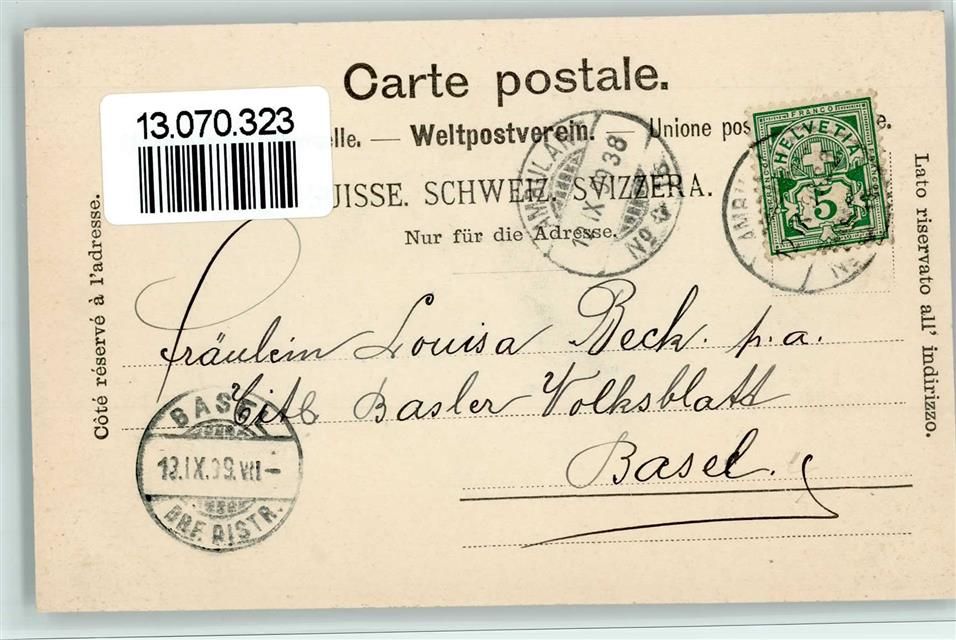 Carte postale.
13.070.323
elle. — Weltpostverein. — Unione pos e.
UISSE. SCHWEIZ. SVIZZERA.
Nur für die Adresse.
Côté réservé à l'adresse.
Lato riservato all' indirizzo.
FRANCO
HELVETIA
5
AMBULANT
IX 99 38
No
AMBU
No
Fräulein Louisa Beck. p. a.
Basler Volksblatt
Basel.
BASEL
13.IX.99.VII-
BRF. DISTR.